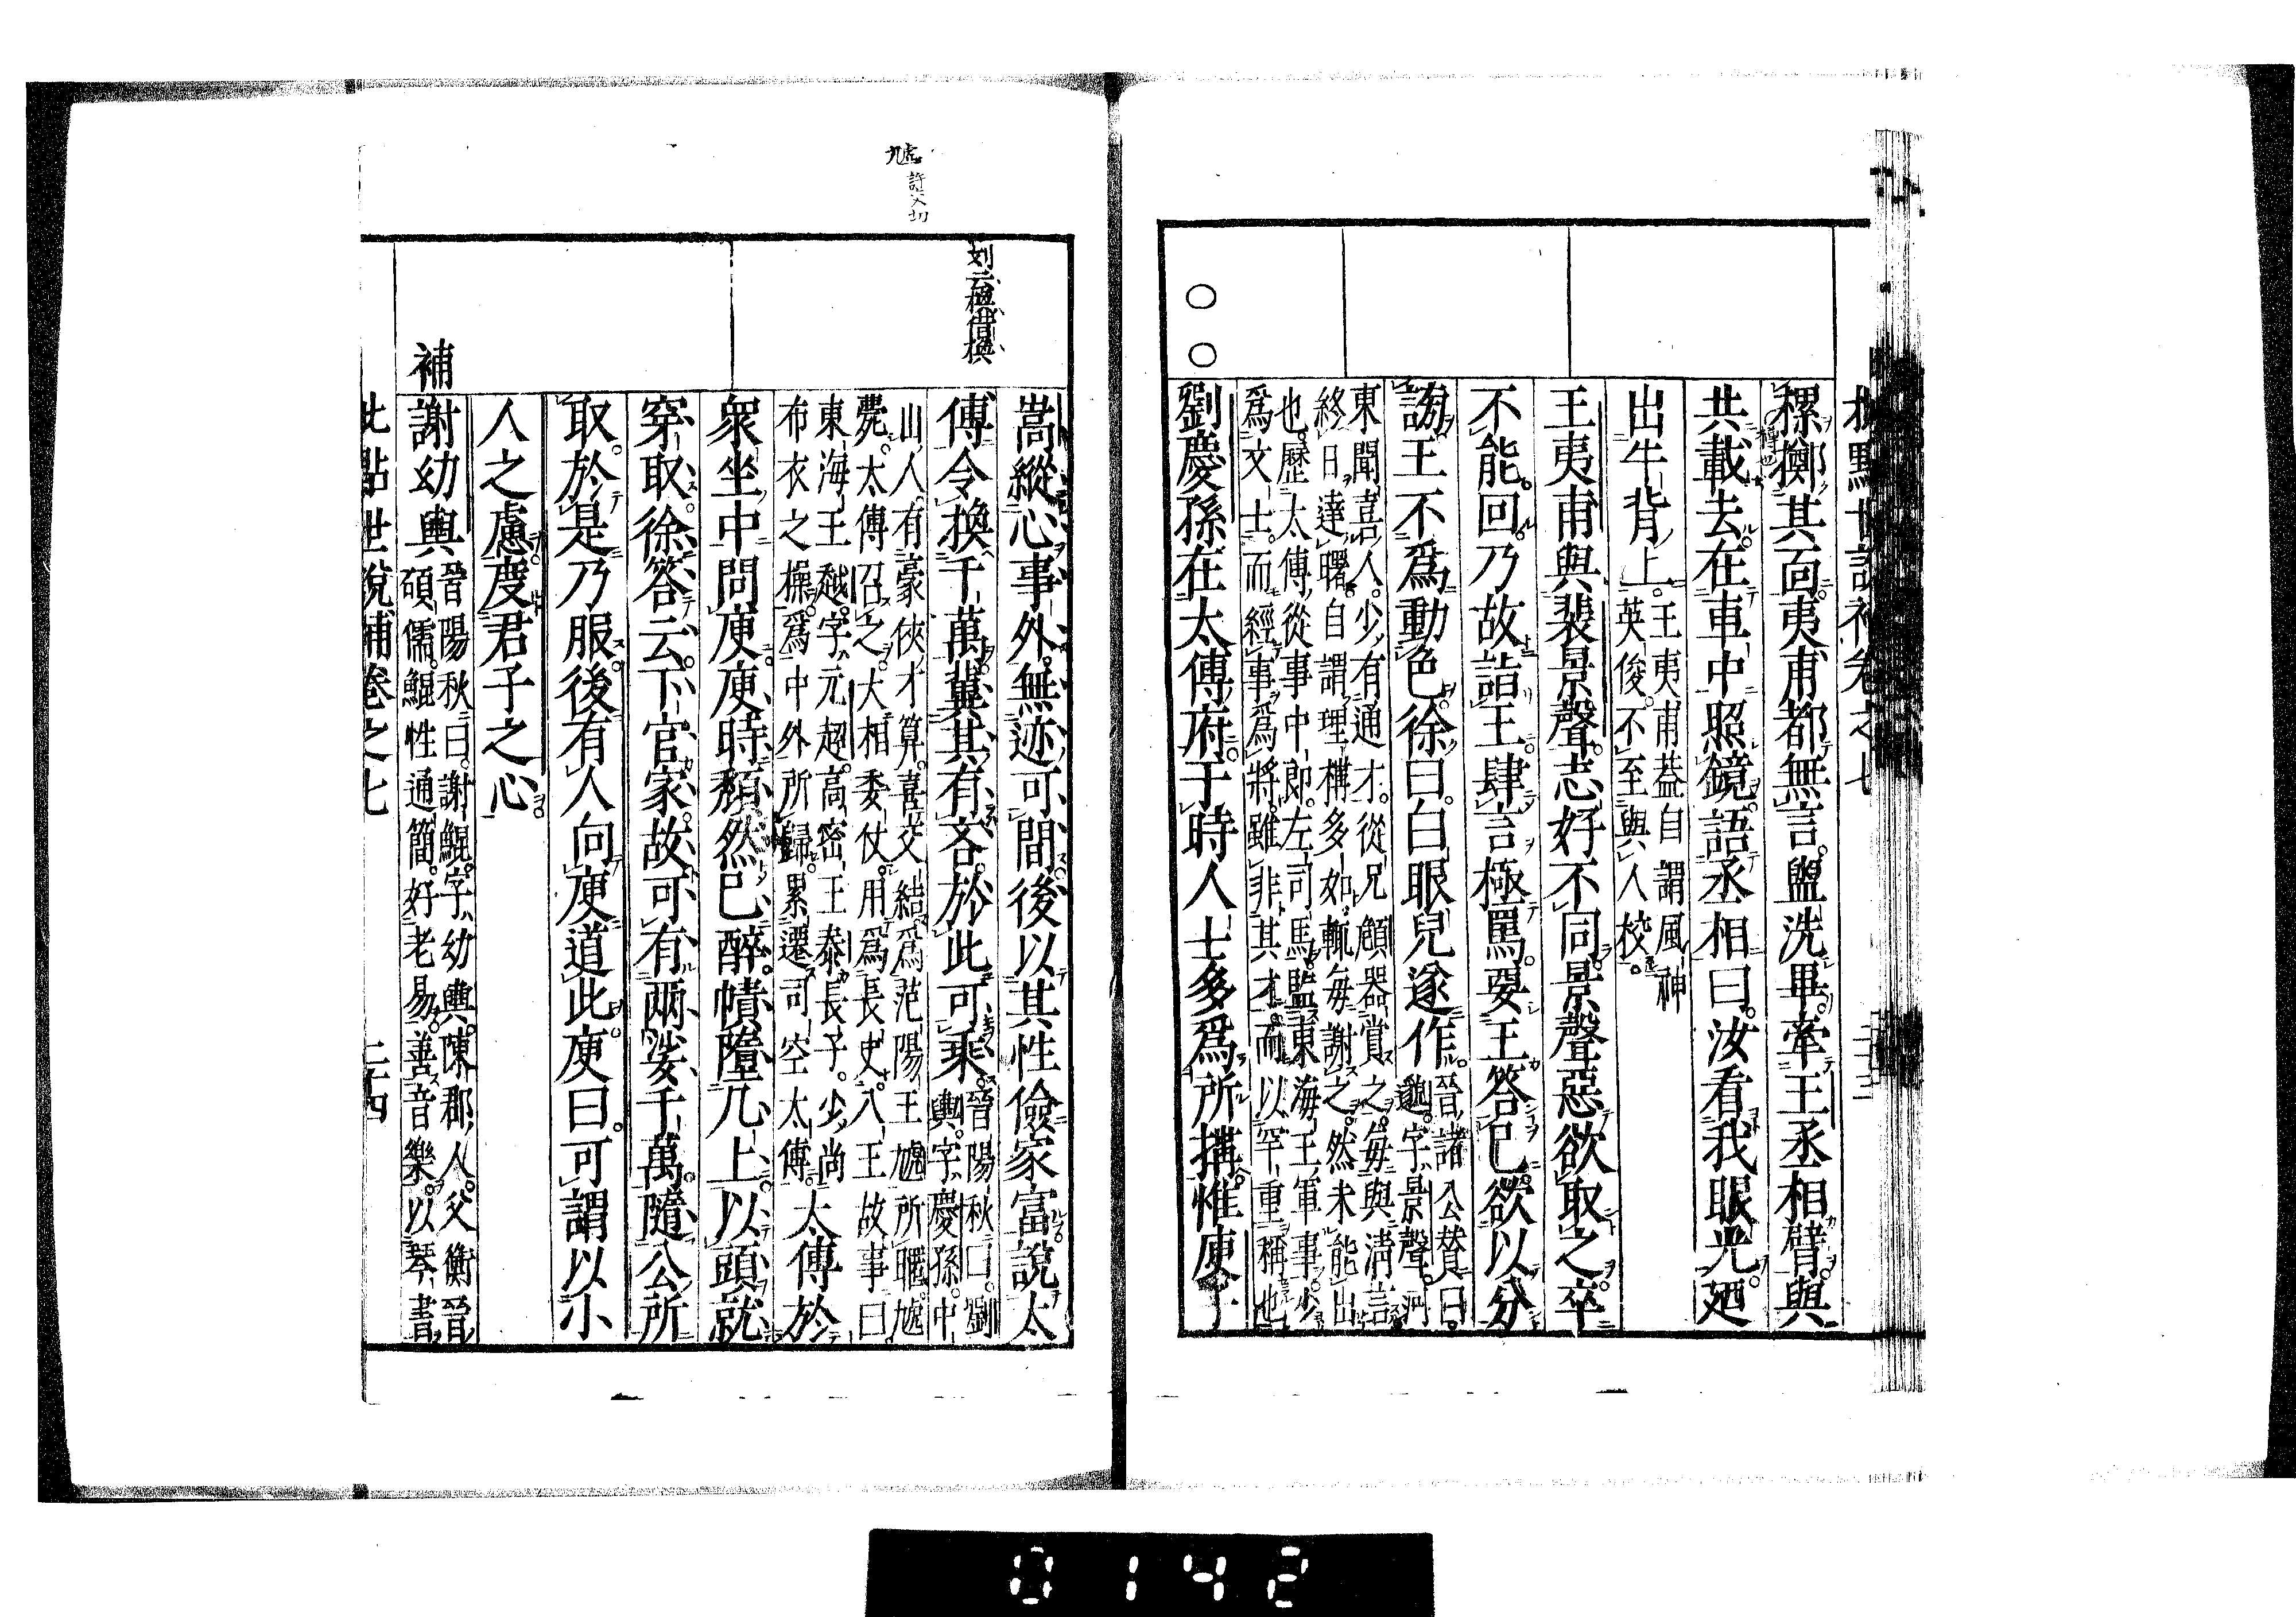 樏擲其面夷甫都無言盥洗畢牽王丞相臂與
共載去在車中照鏡語丞相曰汝看我眼光廼
出牛背上王夷甫葢自謂風神
英俊不至與人校
王夷甫與裴景聲志好不同景聲惡欲取之卒
不能回乃故詣王肆言極罵要王答已欲以分
謗王不爲動色徐曰白眼兒遂作晉諸公賛曰
邈字景聲河
東聞喜人少有通才從兄頠器賞之每與淸言
終日達曙自謂理構多如輒每謝之然未能出
也歷太傅從事中郎左司馬監東海王軍事少
爲文士而經事爲將雖非其才而以罕重稱也
○○
劉慶孫在太傅府于時人士多爲所搆惟庾子
嵩縱心事外無迹可間後以其性儉家富說太
傅令換千萬冀其有吝於此可乘晉陽秋曰劉
輿字慶孫中
山人有豪俠才算喜交結爲范陽王虓所暱虓
薨太傅召之大相委仗用爲長史八王故事曰
東海王越字元超高密王泰長子少尚
布衣之操爲中外所歸累遷司空太傅太傅於
衆坐中問庾庾時頹然已醉幘墮几上以頭就
穿取徐答云下官家故可有兩娑千萬隨公所
取於是乃服後有人向庾道此庾曰可謂以小
人之慮度君子之心
補
謝幼輿晉陽秋曰謝鯤字幼輿陳郡人父衡晉
碩儒鯤性通簡好老易善音樂以琴書
批點世說補卷之七
二十四
劉云換借換
虓
許交切
0142